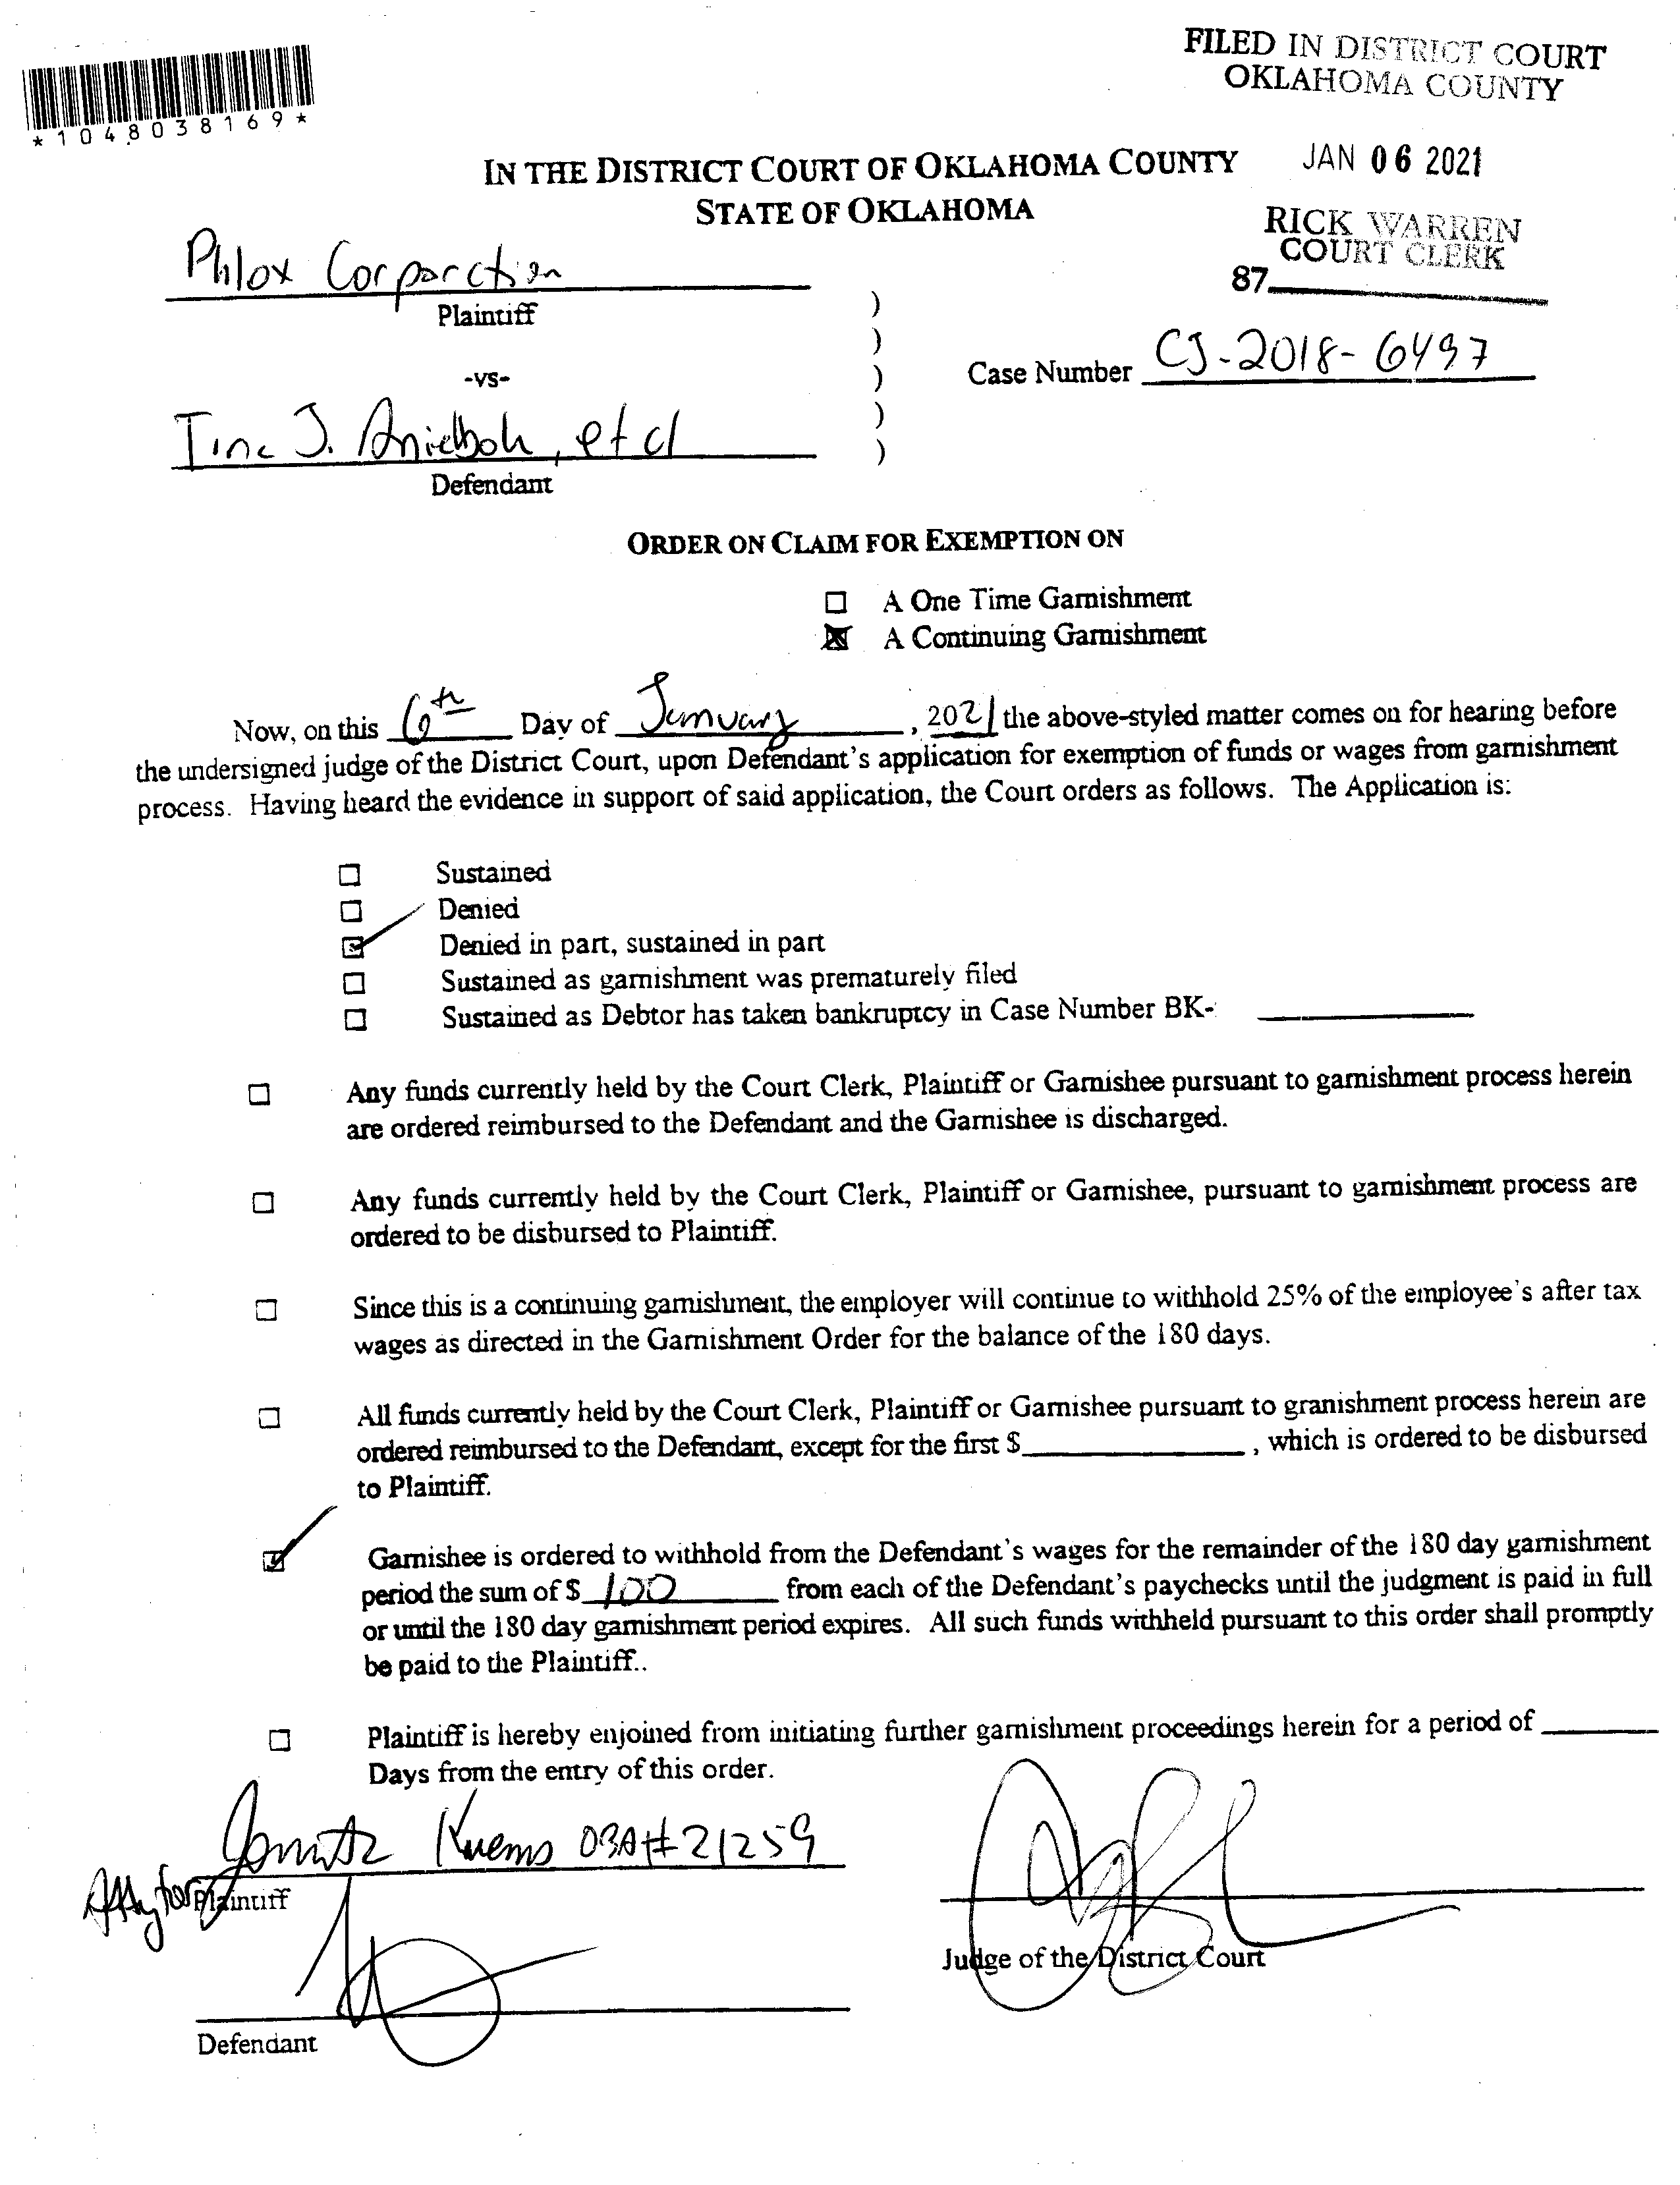 FILED IN DISTRICT COURT
OKLAHOMA COUNTY
*1048038169*
JAN 06 2021
IN THE DISTRICT COURT OF OKLAHOMA COUNTY
STATE OF OKLAHOMA
RICK WARREN
COURT CLERK
87
Philox Corporation
Plaintiff
)
)
-vs-
)
Case Number CJ-2018-6497
)
)
Tina J. , et al
Defendant
ORDER ON CLAIM FOR EXEMPTION ON
☐ A One Time Garnishment
☒ A Continuing Garnishment
Now, on this 6th Day of January, 2021 the above-styled matter comes on for hearing before
the undersigned judge of the District Court, upon Defendant's application for exemption of funds or wages from garnishment
process. Having heard the evidence in support of said application, the Court orders as follows. The Application is:
☐ Sustained
☐ Denied
☑ Denied in part, sustained in part
☐ Sustained as garnishment was prematurely filed
☐ Sustained as Debtor has taken bankruptcy in Case Number BK- ________
☐ Any funds currently held by the Court Clerk, Plaintiff or Garnishee pursuant to garnishment process herein
are ordered reimbursed to the Defendant and the Garnishee is discharged.
☐ Any funds currently held by the Court Clerk, Plaintiff or Garnishee, pursuant to garnishment process are
ordered to be disbursed to Plaintiff.
☐ Since this is a continuing garnishment, the employer will continue to withhold 25% of the employee's after tax
wages as directed in the Garnishment Order for the balance of the 180 days.
☐ All funds currently held by the Court Clerk, Plaintiff or Garnishee pursuant to granishment process herein are
ordered reimbursed to the Defendant, except for the first $________, which is ordered to be disbursed
to Plaintiff.
☑ Garnishee is ordered to withhold from the Defendant's wages for the remainder of the 180 day garnishment
period the sum of $ 100 from each of the Defendant's paychecks until the judgment is paid in full
or until the 180 day garnishment period expires. All such funds withheld pursuant to this order shall promptly
be paid to the Plaintiff..
☐ Plaintiff is hereby enjoined from initiating further garnishment proceedings herein for a period of ________
Days from the entry of this order.
OBA# 21259
Atty for Plaintiff
Judge of the District Court
Defendant